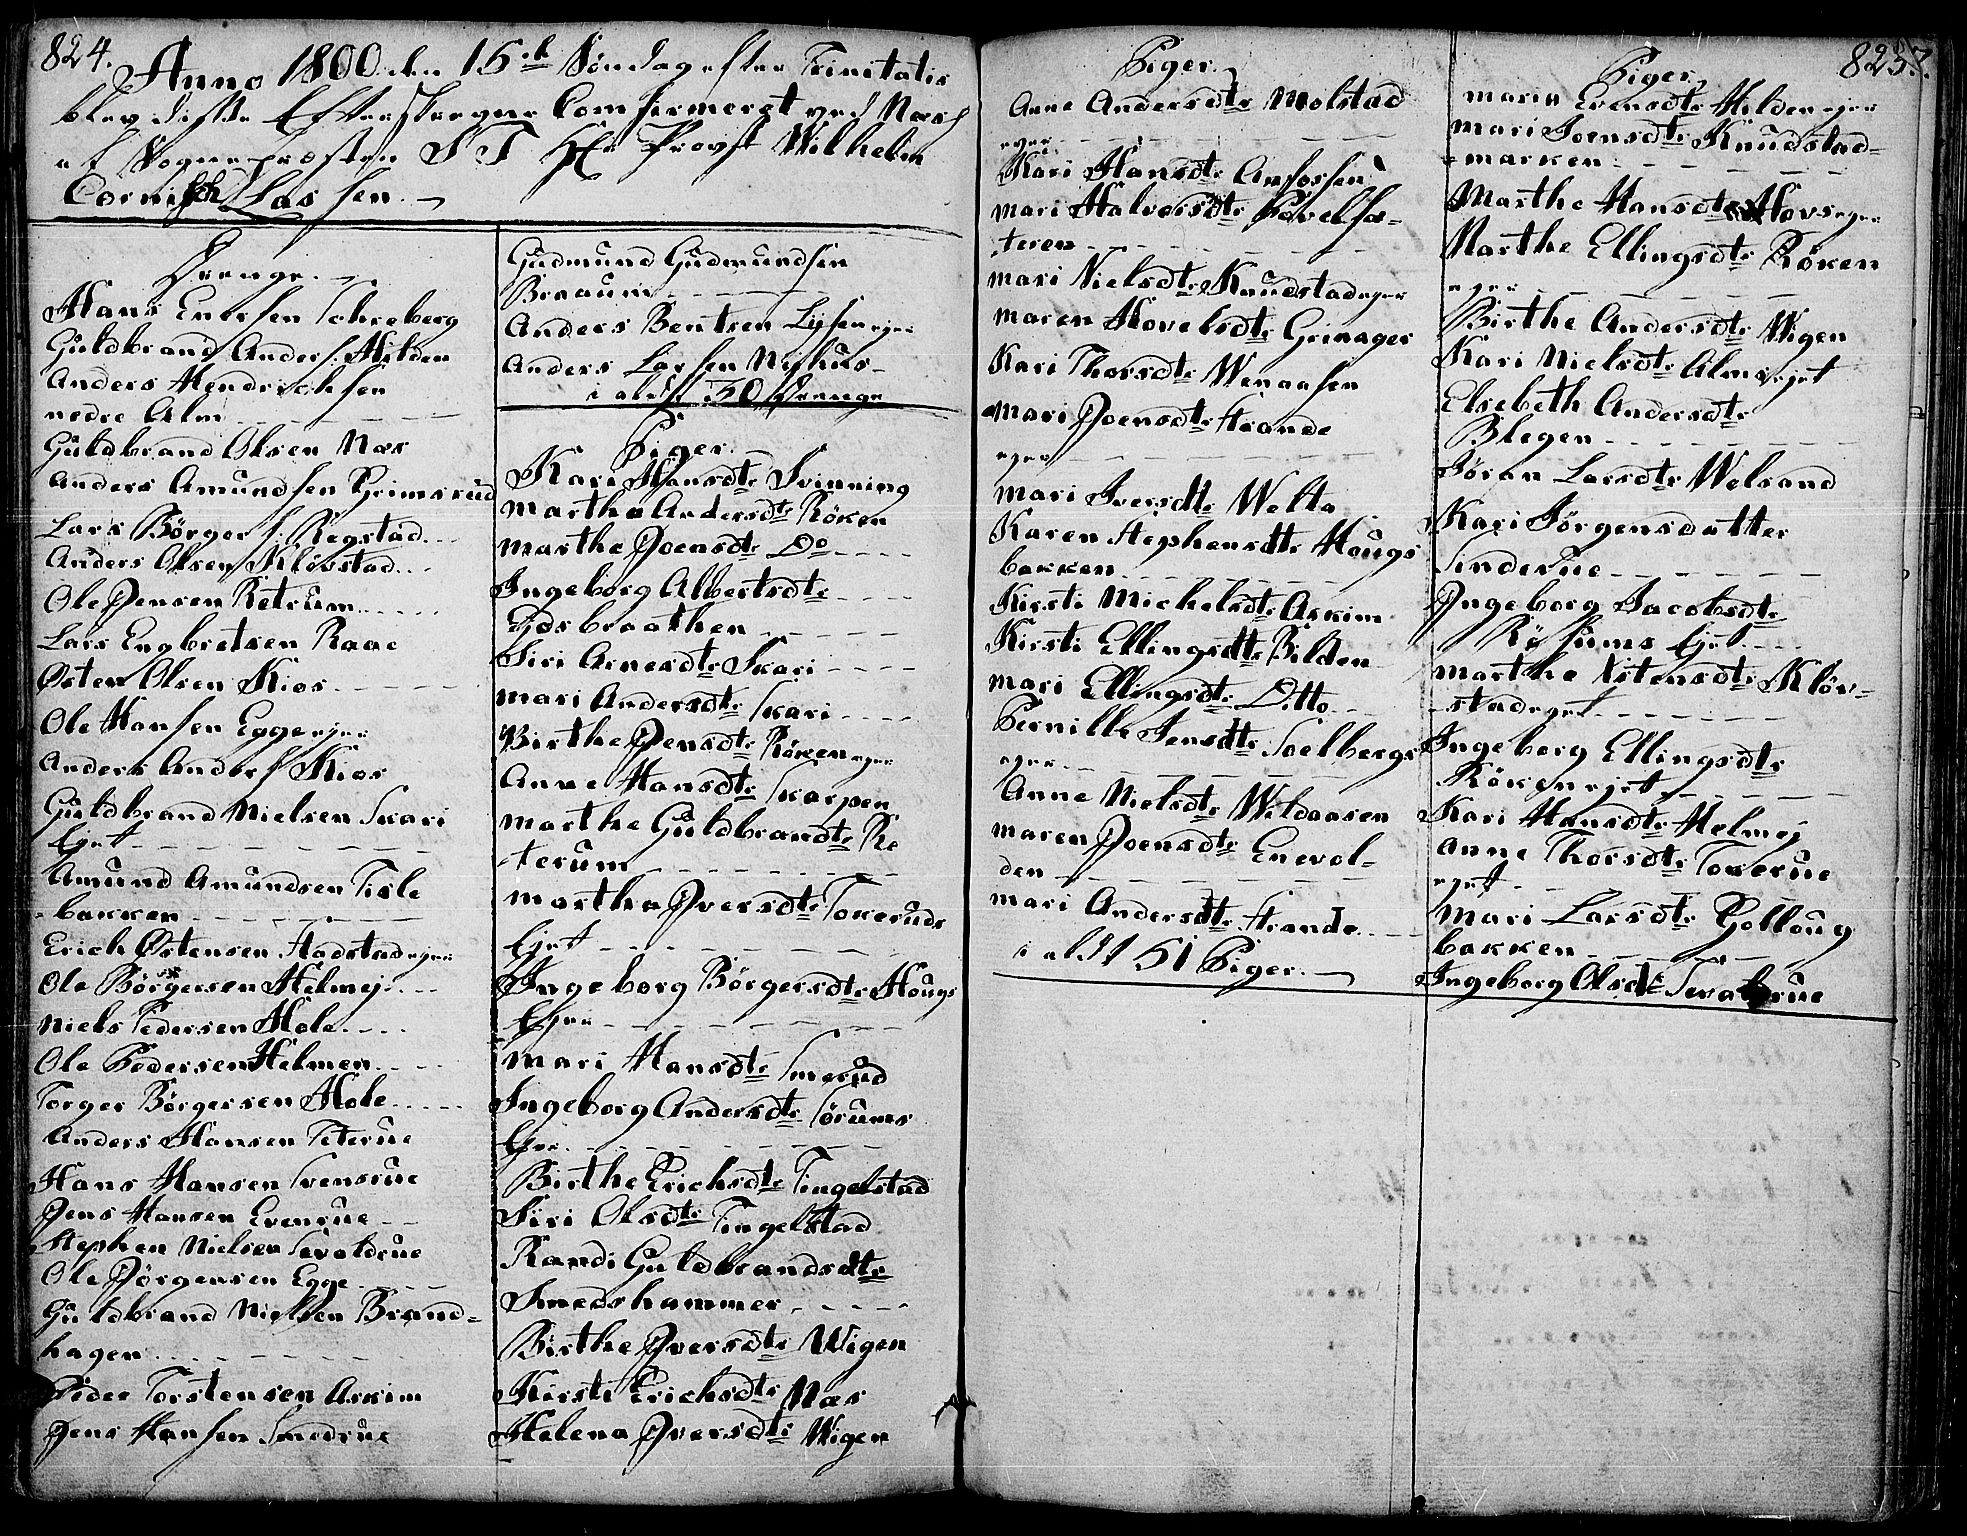 824.
Anno 1800 den 15de Søndag efter Trinitatis
blev diste Efterskrevne Comfermeret ved Næss
af Sognepræsten S T Hr Provst Wilhelm
Cornisch Lassen.
Drenge.
Hans Enersen Schreberg
Guldbrand Anders: Hilden
Anders Hendrichsen
nedre Alm
Guldbrand Olsen Næs
Anders Amundsen Grimsrud
Lars Børgers: Regstad
Anders Olsen Kløvstad
Ole Jensen Retrum
Lars Engbretsen Raae
Østen Olsen Kios
Ole Hansen Egge ejer
Anders Anders: Kios
Guldbrand Nielsen Skari
Ejet
Amund Amundsen Tisle
bakken
Erich Østensen Stadstad ejer
Ole Børgersen Helmej
Niels Pedersen Hole
Ole Pedersen Helmen
Torger Børgersen Hole
Anders Hansen Teterue
Hans Hansen Svensrue
Jens Hansen Evenrue
Stephen Nielsen Sevaldrue
Ole Jørgensen Egge
Guldbrand Nielsen Brand-
hagen
Peder Torstensen Askim
Jens Hansen Smedrue
Gudmund Gudmundsen
Braaum
Anders Bentsen Lysen ejer
Anders Larsen Nyhus
i alt 30 Drenge
Piger.
Kari Hansdtr Svinning
Martha Andersdtr Røken
Marthe Joensdtr Do
Ingeborg Albertsdtr
Gosbraathen
Siri Arnesdtr Skari
Mari Andersdtr Skari
Birthe Jensdtr Røken ejer
Anne Hansdtr Skarpen
Marthe Guldbrandtr Re
terum
Martha Iversdtr Tokeruds
Ejet
Ingeborg Børgersdtr Hougs
Ejer
Mari Hansdtr Smerud
Ingeborg Andersdtr Sørums
Ejer
Birthe Erichsdtr Tingelstad
Siri Olsdtr Tingelstad
Randi Guldbrandsdtr
Smedshammer
Birthe Iversdtr Wigen
Kirsti Erichsdtr Næs
Helena Iversdtr Wigen
Piger
Anne Andersdtr Molstad
ejer
Kari Hansdtr Aafossen
Mari Halvorsdtr Povelsæ-
teren
Mari Nielsdtr Knudstad ejer
Maren Hovelsdtr Grinager
Kari Thorsdtr Wenaasen
Mari Joensdtr Strande
ejer
Mari Iversdtr Welta
Karen Stephensdtr Hougs
bakken
Kirsti Michelsdtr Askim
Kirsti Ellingsdtr Bilden
Mari Ellingsdtr Ditto
Pernille Jensdtr Soelbergs
ejer
Anne Nielsdtr Wildaasen
Maren Joensdtr Enevol-
den
Mari Andersdtr Strande
i alt 51 Piger.
825.
Piger
Maria Evensdtr Hilden ejer
Mari Joensdtr Knudstad-
marken
Marthe Hansdtr Hovs ejer
Marthe Ellingsdtr Røken
ejer
Birthe Andersdtr Wigen
Kari Nielsdtr Alms ejet
Elsebeth Andersdtr
Blegen
Jøran Larsdtr Welsand
Kari Jørgensdatter
Sinderue
Ingeborg Jacobsdtr
Røssums Ejet
Marthe Østensdtr Kløv-
stad ejet
Ingeborg Ellingsdtr
Røken ejet
Kari Hansdtr Helmej
Anne Thorsdtr Tokerue
ejet
Mari Larsdtr Golloug
bakken
Ingeborg Olsdtr